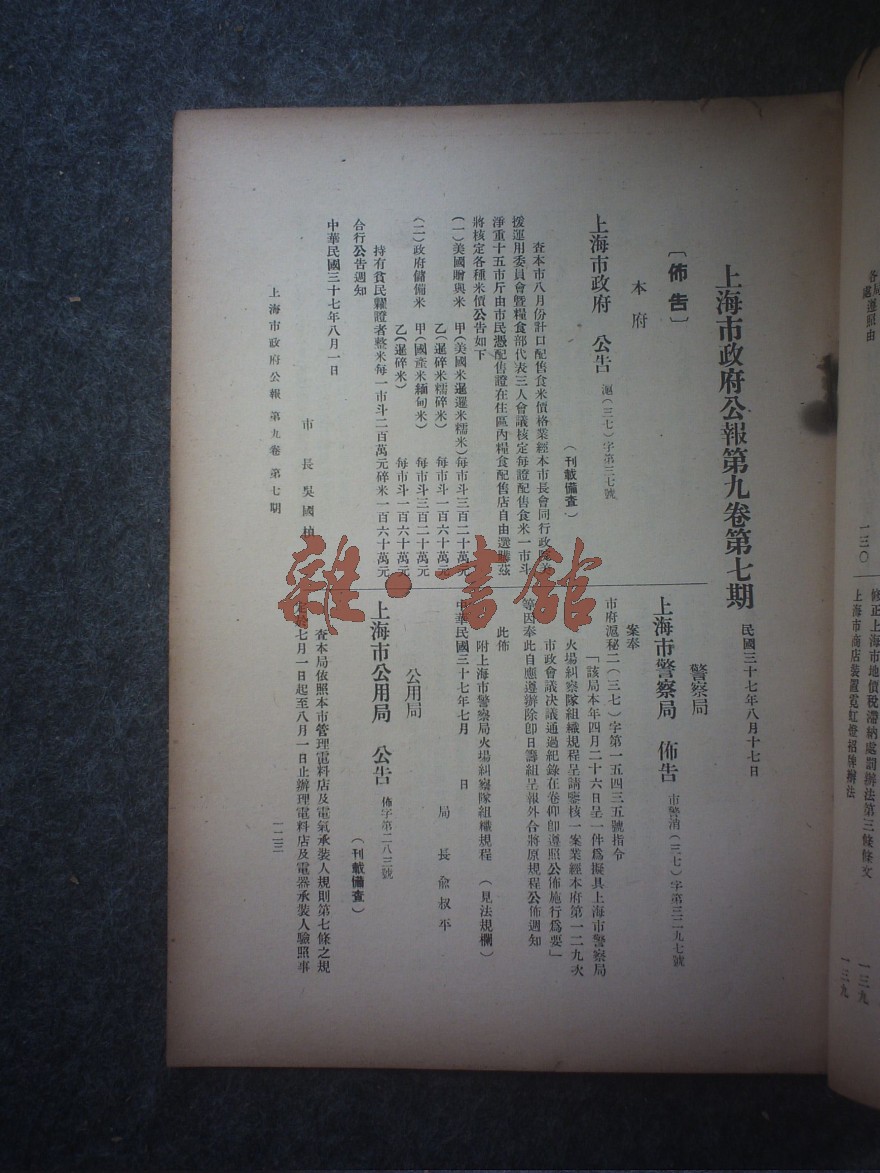 上海市政府公報第九卷第七期
民國三十七年八月十七日
〔佈告〕
本府
上海市政府 公告 滬(三七)字第三七號
(刊載備查)
查本市八月份計口配售食米價格業經本市長會同行政院美
援運用委員會暨糧食部代表三人會議核定每證配售食米一市斗
淨重十五市斤由市民憑配售證在住區內糧食配售店自由選購茲
將核定各種米價公告如下
(一)美國贈與米 甲(美國米暹邏米糯米)每市斗三百二十萬元
乙(暹碎米糯碎米) 每市斗一百六十萬元
(二)政府儲備米 甲(國產米緬甸米) 每市斗三百二十萬元
乙(暹碎米) 每市斗一百六十萬元
持有貧民糶證者整米每一市斗二百萬元碎米一百六十萬元
合行公告週知
中華民國三十七年八月一日
市長 吳國楨
警察局
上海市警察局 佈告 市警消(三七)字第三二九七號
案奉
市府滬秘二(三七)字第一五四三五號指令
「該局本年四月二十六日呈一件為擬具上海市警察局
火場糾察隊組織規程呈請鑒核一案業經本府第一二九次
市政會議決議通過紀錄在卷仰卽遵照公佈施行為要」
等因奉此自應遵辦除卽日籌組呈報外合將原規程公佈週知
此佈
附上海市警察局火場糾察隊組織規程 (見法規欄)
中華民國三十七年七月 日
局長 俞叔平
公用局
上海市公用局 公告 佈字第二八三號
(刊載備查)
查本局依照本市管理電料店及電氣承裝人規則第七條之規
七月一日起至八月一日止辦理電料店及電器承裝人驗照事
上海市政府公報 第九卷 第七期
一二三
各局處遵照由
一三〇
修正上海市地價稅滯納處罰辦法第三條條文
一三九
上海市商店裝置霓虹燈招牌辦法
一三九
雜·書館